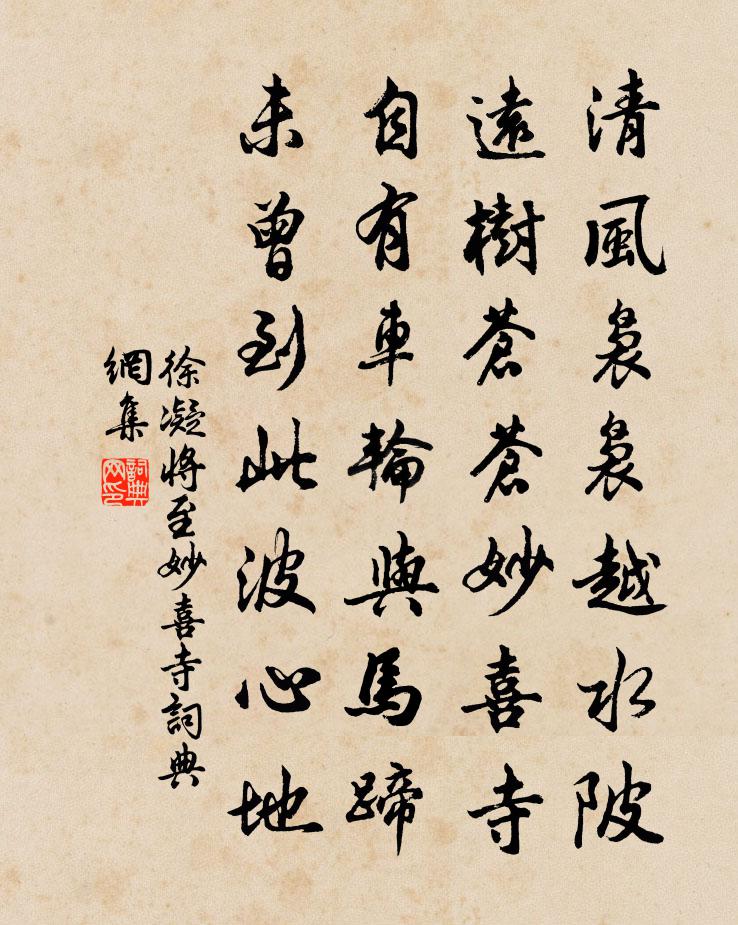 清風裊裊越水陂
遠樹蒼蒼妙喜寺
自有車輪與馬蹄
未曾到此波心地
徐凝將至妙喜寺詞典
網集
詞典网印